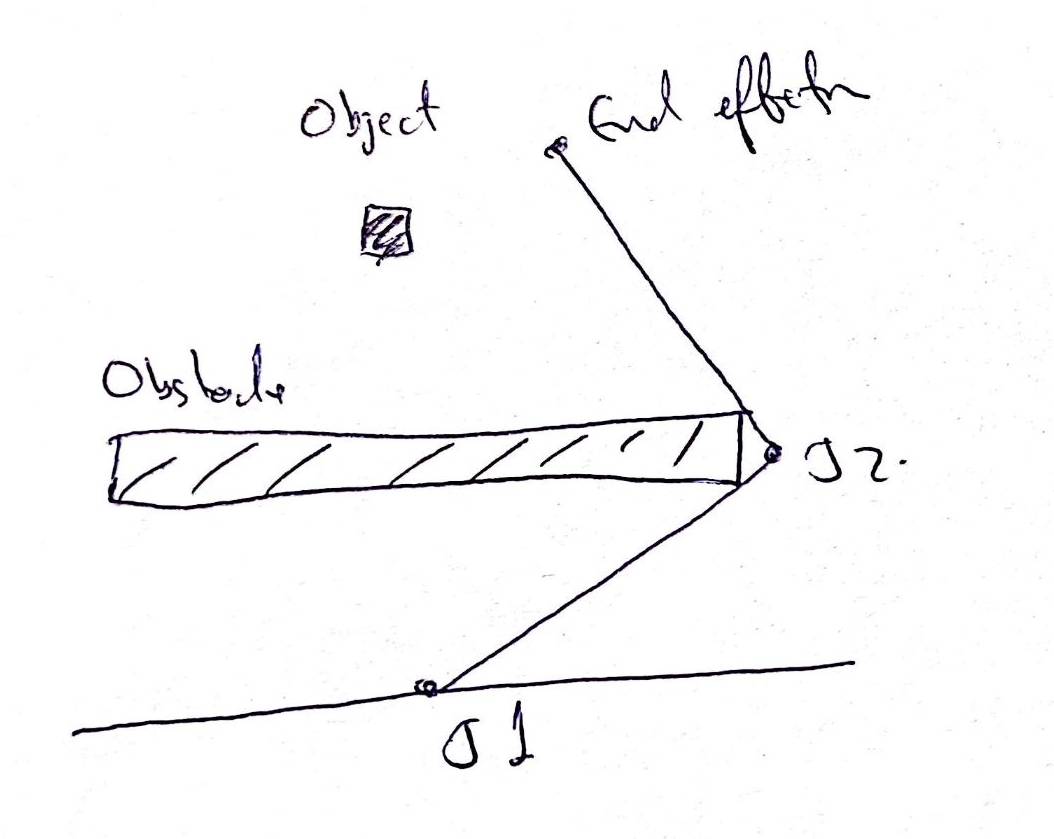 Object
End effector
Obstacle
J2.
J1